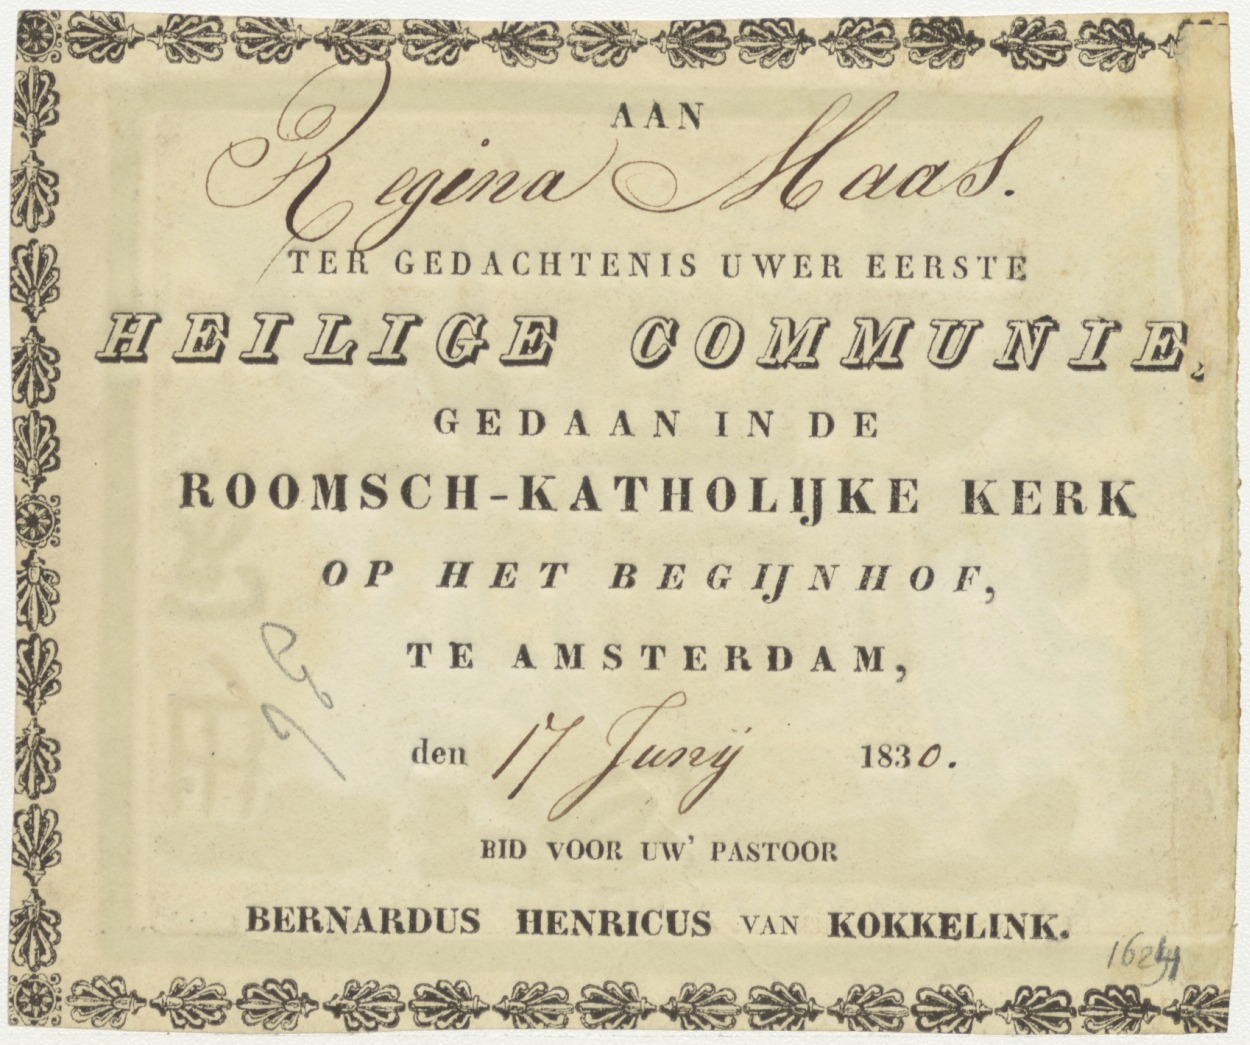 AAN
Regina Maas.
TER GEDACHTENIS UWER EERSTE
HEILIGE COMMUNIE,
GEDAAN IN DE
ROOMSCH-KATHOLIJKE KERK
OP HET BEGIJNHOF,
TE AMSTERDAM,
den 17 Junij 1830.
BID VOOR UW' PASTOOR
BERNARDUS HENRICUS VAN KOKKELINK.